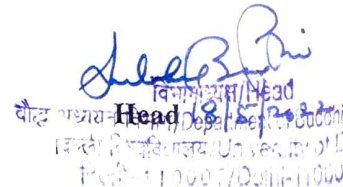 विभागाध्यक्ष/Head
Head 18/5/2022
बौद्ध अध्ययन विभाग/Department of Buddhi
दिल्ली विश्वविद्यालय/University of D
दिल्ली-110007/Delhi-11000